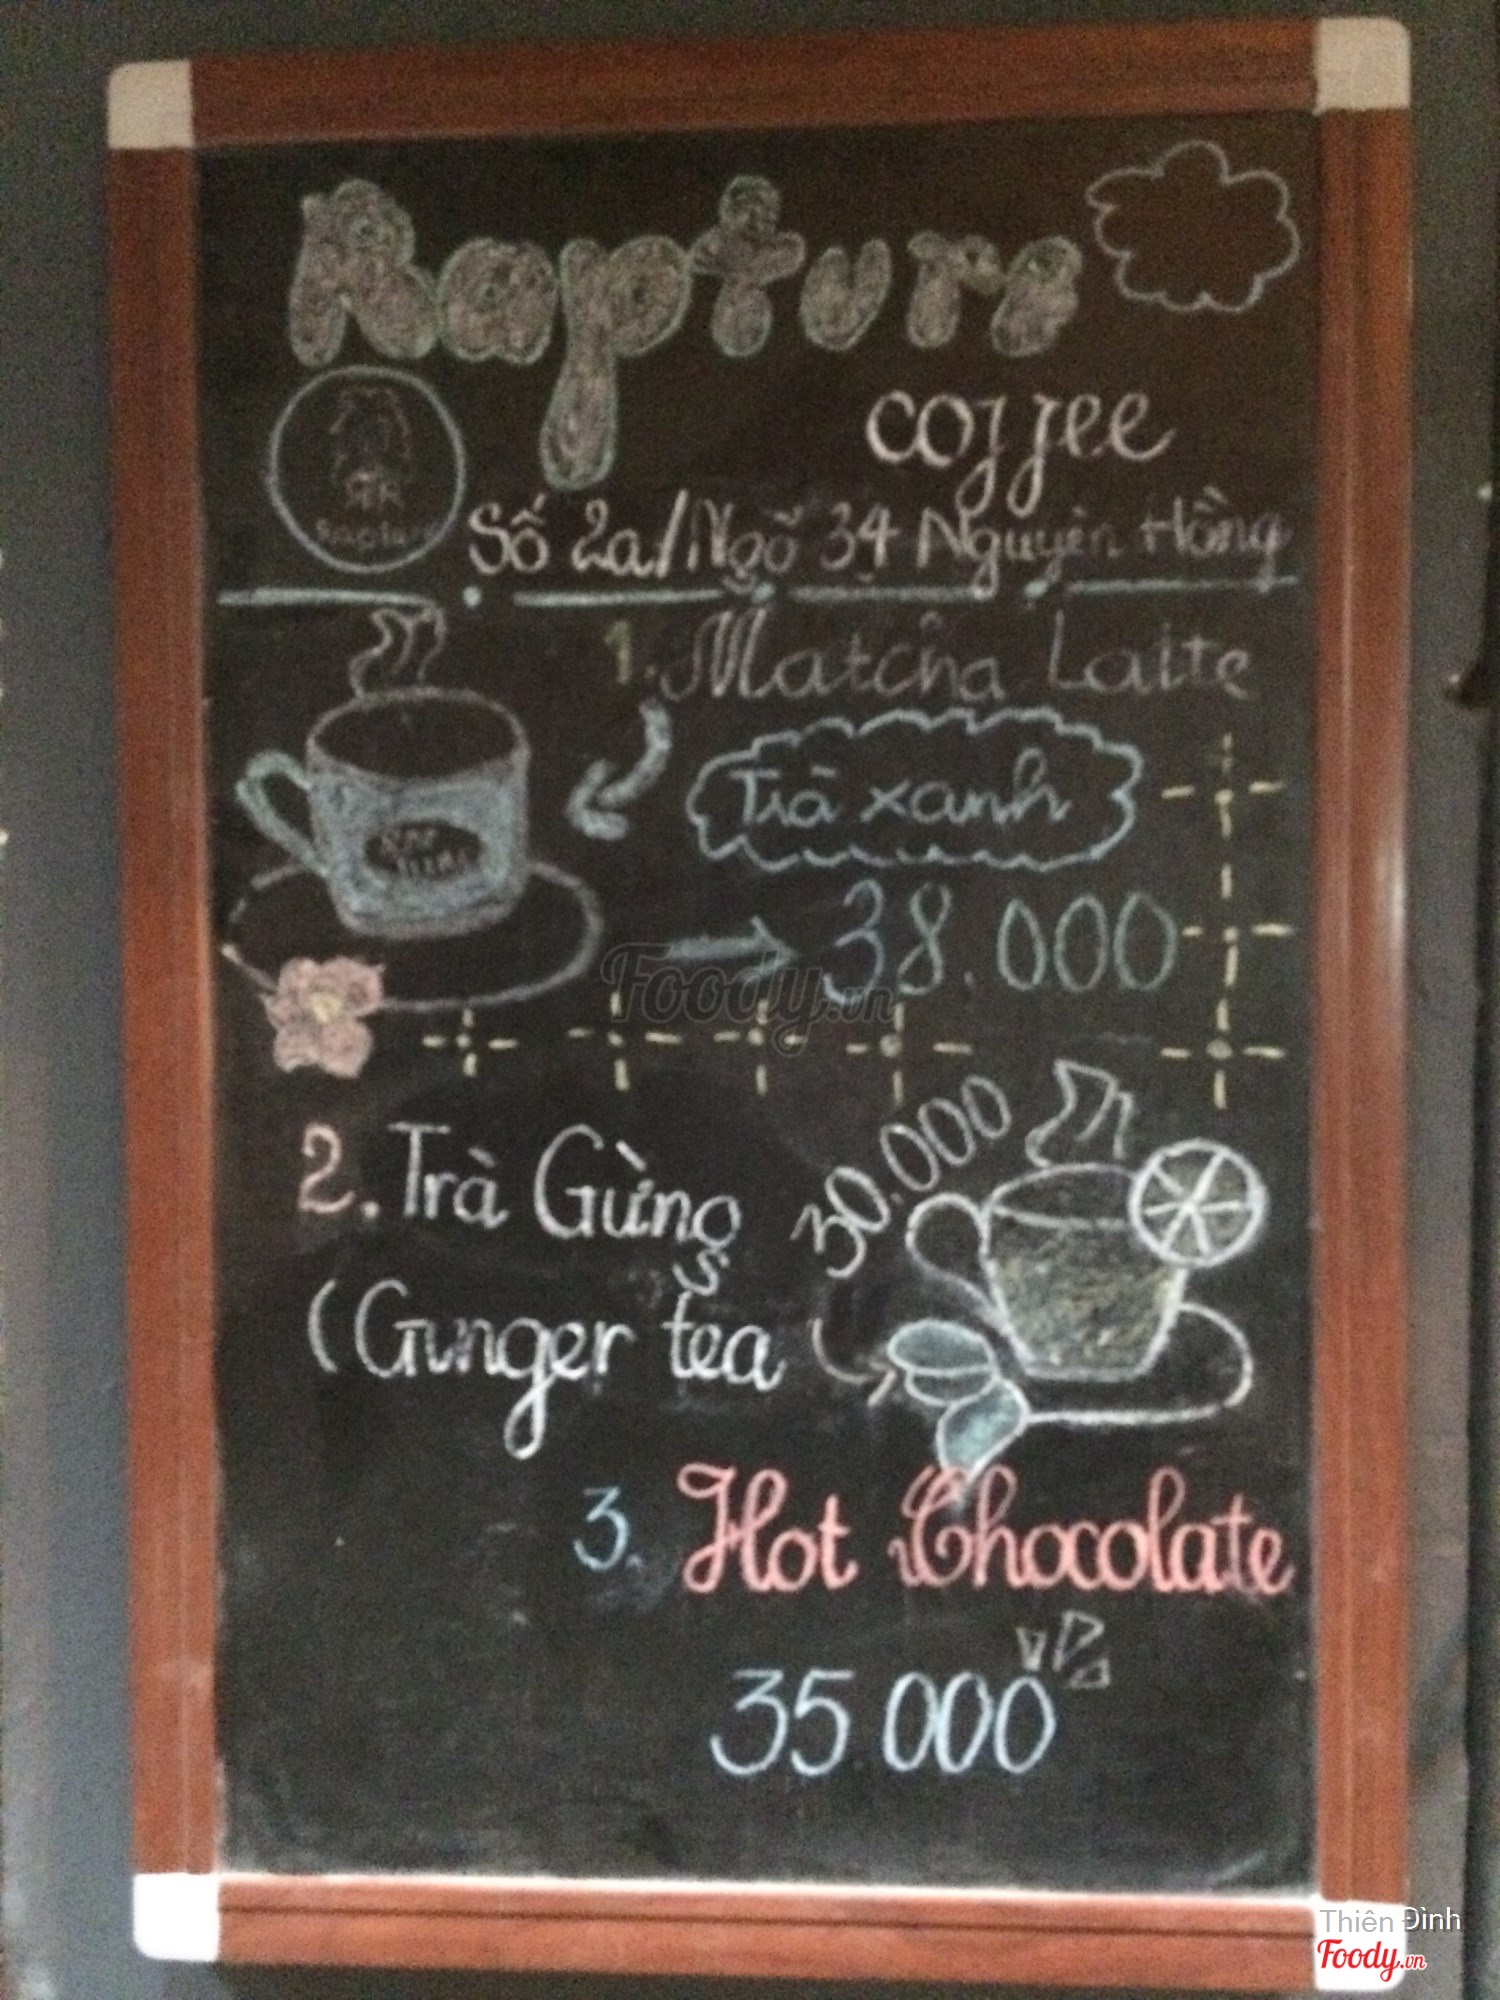 Rapture
coffee
Số 2a/Ngõ 34 Nguyên Hồng
1. Matcha Latte
Trà xanh
38.000
Foody.vn
2. Trà Gừng
30.000
(Ginger tea
3. Hot Chocolate
35.000
Thiên Đình
Foody.vn